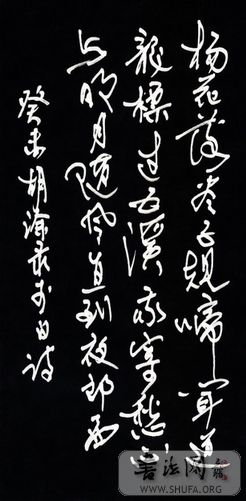 杨花落尽子规啼闻道
龙标过五溪我寄愁心
与明月随风直到夜郎西
癸未胡渝录李白诗
书法网
WWW.SHUFA.ORG